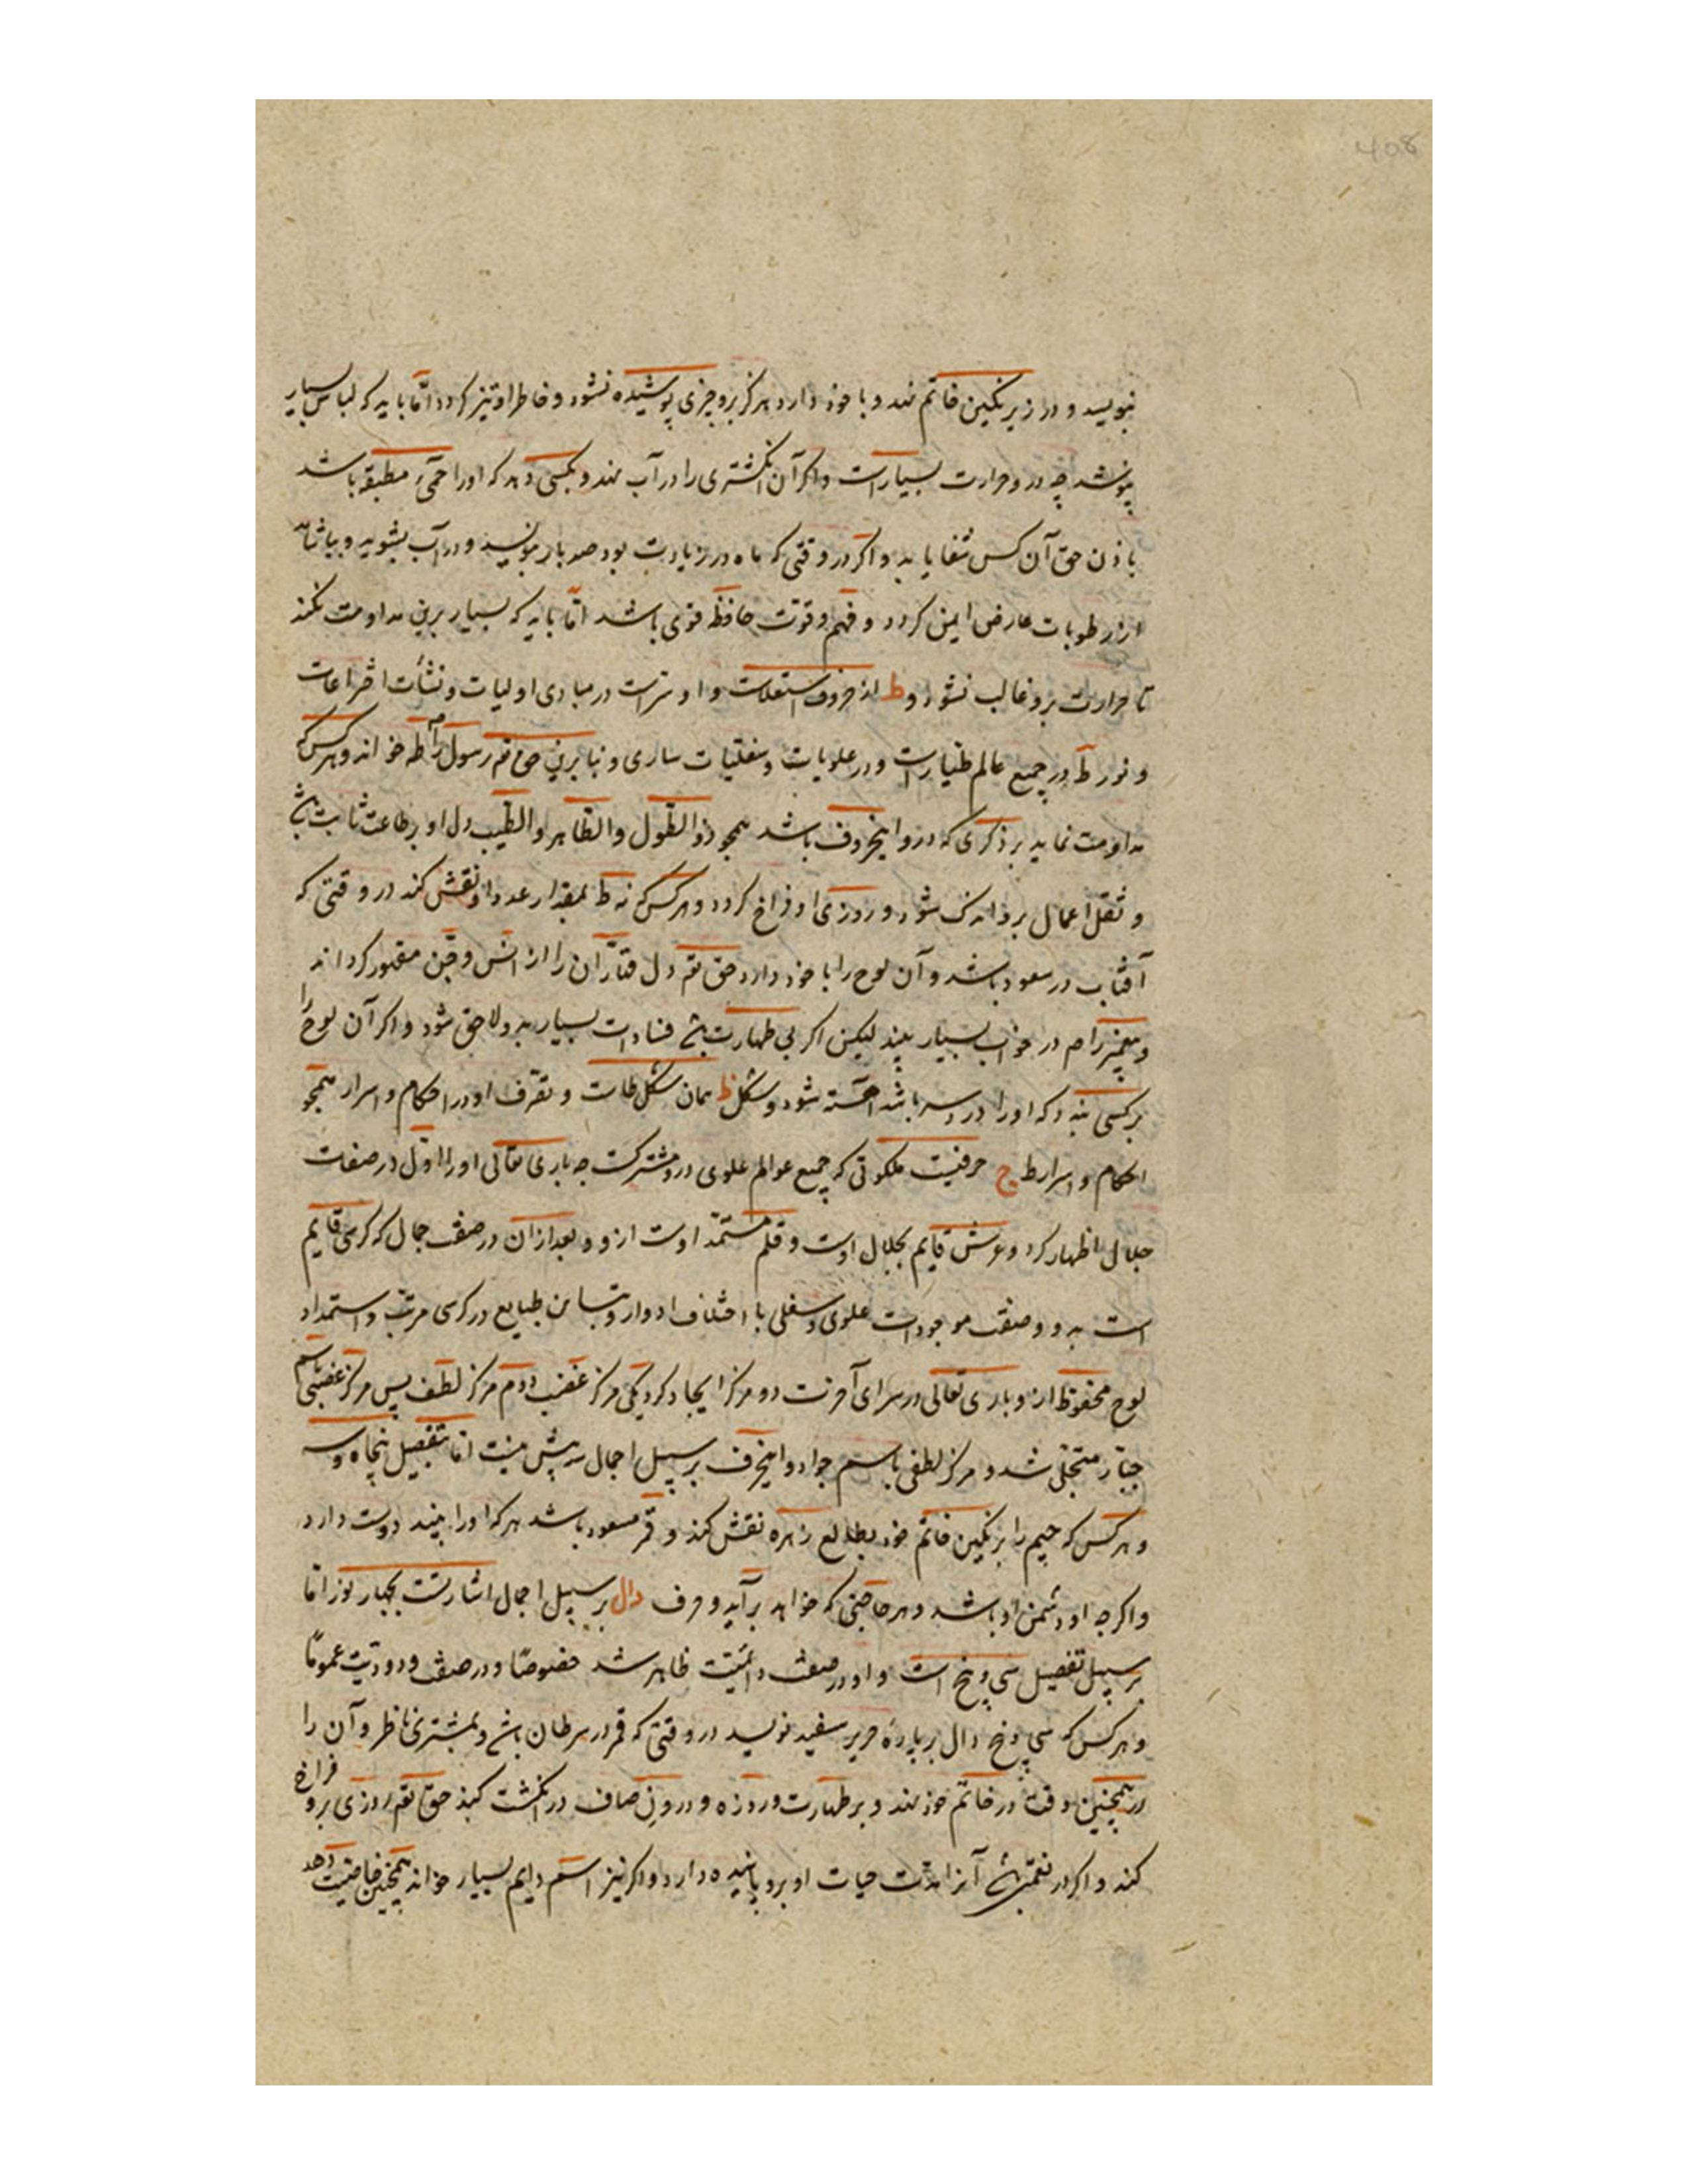 408
بنویسد و در زیر نگین خاتم نهد و با خود دارد هرگز برو چیزی پوشیده نشود و خاطر او تیز کردد اما باید که لباس بسیار
پوشد چه درو حرارت بسیارست و اکر آن انکشتری را در آب نهد و بکسی دهد که او را حمی مطبقه باشد
باذن حق آن کس شفا یابد و اکر در وقتی که ماه در زیادت بود صد بار بنویسد و در آب بشوید و بیاشامد
از رطوبات عارض ایمن کردد و فهم و قوت حافظه قوی باشد اما باید که بسیار برین مداومت نکند
تا حرارت برو غالب نشود و ط از حروف استعلاست و او سریست در مبادی اولیات و نشأت اختراعات
و نور ط در جمیع عالم طیارست و در علویات و سفلیات ساری و بنابرین حق تم رسول را م طه خواند و هرکس که
مداومت نماید بر ذکری که درو اینحروف باشد همچو ذو الطول والطاهر والطیب دل او بر طاعت ثابت باشد
و ثقل اعمال برو اندک شود و روزی او فراخ کردد و هرکس که نه ط بمقدار عدد او نقش کند در وقتی که
آفتاب در سعود باشد و آن لوح را با خود دارد حق تم دل فتّاران را از انس و جن مقهور کرداند
و پیغمبر را م در خواب بسیار بیند لیکن اکر بی طهارت باشد فسادات بسیار بدو لاحق شود و اکر آن لوح را
بر کسی بندد که او را درد سر باشد آهسته شود و شکل ظ همان شکل طاست و تصرف او در احکام و اسرار همچو
احکام و اسرار ط ج حرفیست ملکوتی که جمیع عوالم علوی درو مشترکست چه باری تعالی او را اول در صفات
جلال اظهار کرد و عرش قایم بجلال اوست و قلم مستمد اوست ازو و بعد از آن در صفت جمال که کرسی قایم
است بدو و صفت موجودات علوی و سفلی با اختلاف ادوار و تباین طبایع در کرسی مرتب و استمداد
لوح محفوظ ازو باری تعالی در سرای آخرت دو مرکز ایجاد کرد یکی مرکز غضب دوم مرکز لطف پس مرکز غضبی باسم
جبار متجلی شد و مرکز لطفی باسم جواد و اینحرف بر سبیل اجمال سه بیش نیست اما بتفصیل پنجاه و سه
و هرکس که جیم را بر نکین خاتم خود بطالع زهره نقش کند و قمر مسعود باشد هرکه او را بیند دوست دارد
و اکرچه او دشمن او باشد و هر حاجتی که خواهد برآید و حرف دال بر سبیل اجمال اشارتست بچهار نور اما
بر سبیل تفصیل سی و پنج است و او در صفت دائمیت ظاهر شد خصوصا و در صفت ودودیت عموما
و هرکس که سی و پنج دال بر پارهٔ حریر سفید نویسد در وقتی که قمر در سرطان باشد و بمشتری ناظر و آن را
در همچنین وقت در خاتم خود نهد و بر طهارت و روزه و درون صاف در انکشت کند حق تم روزی برو فراخ
کند و اکر در نعمتی باشد آنرا مدت حیات او برو پاینده دارد و اکر نیز اسم دایم بسیار خواند همچنین خاصیت دهد